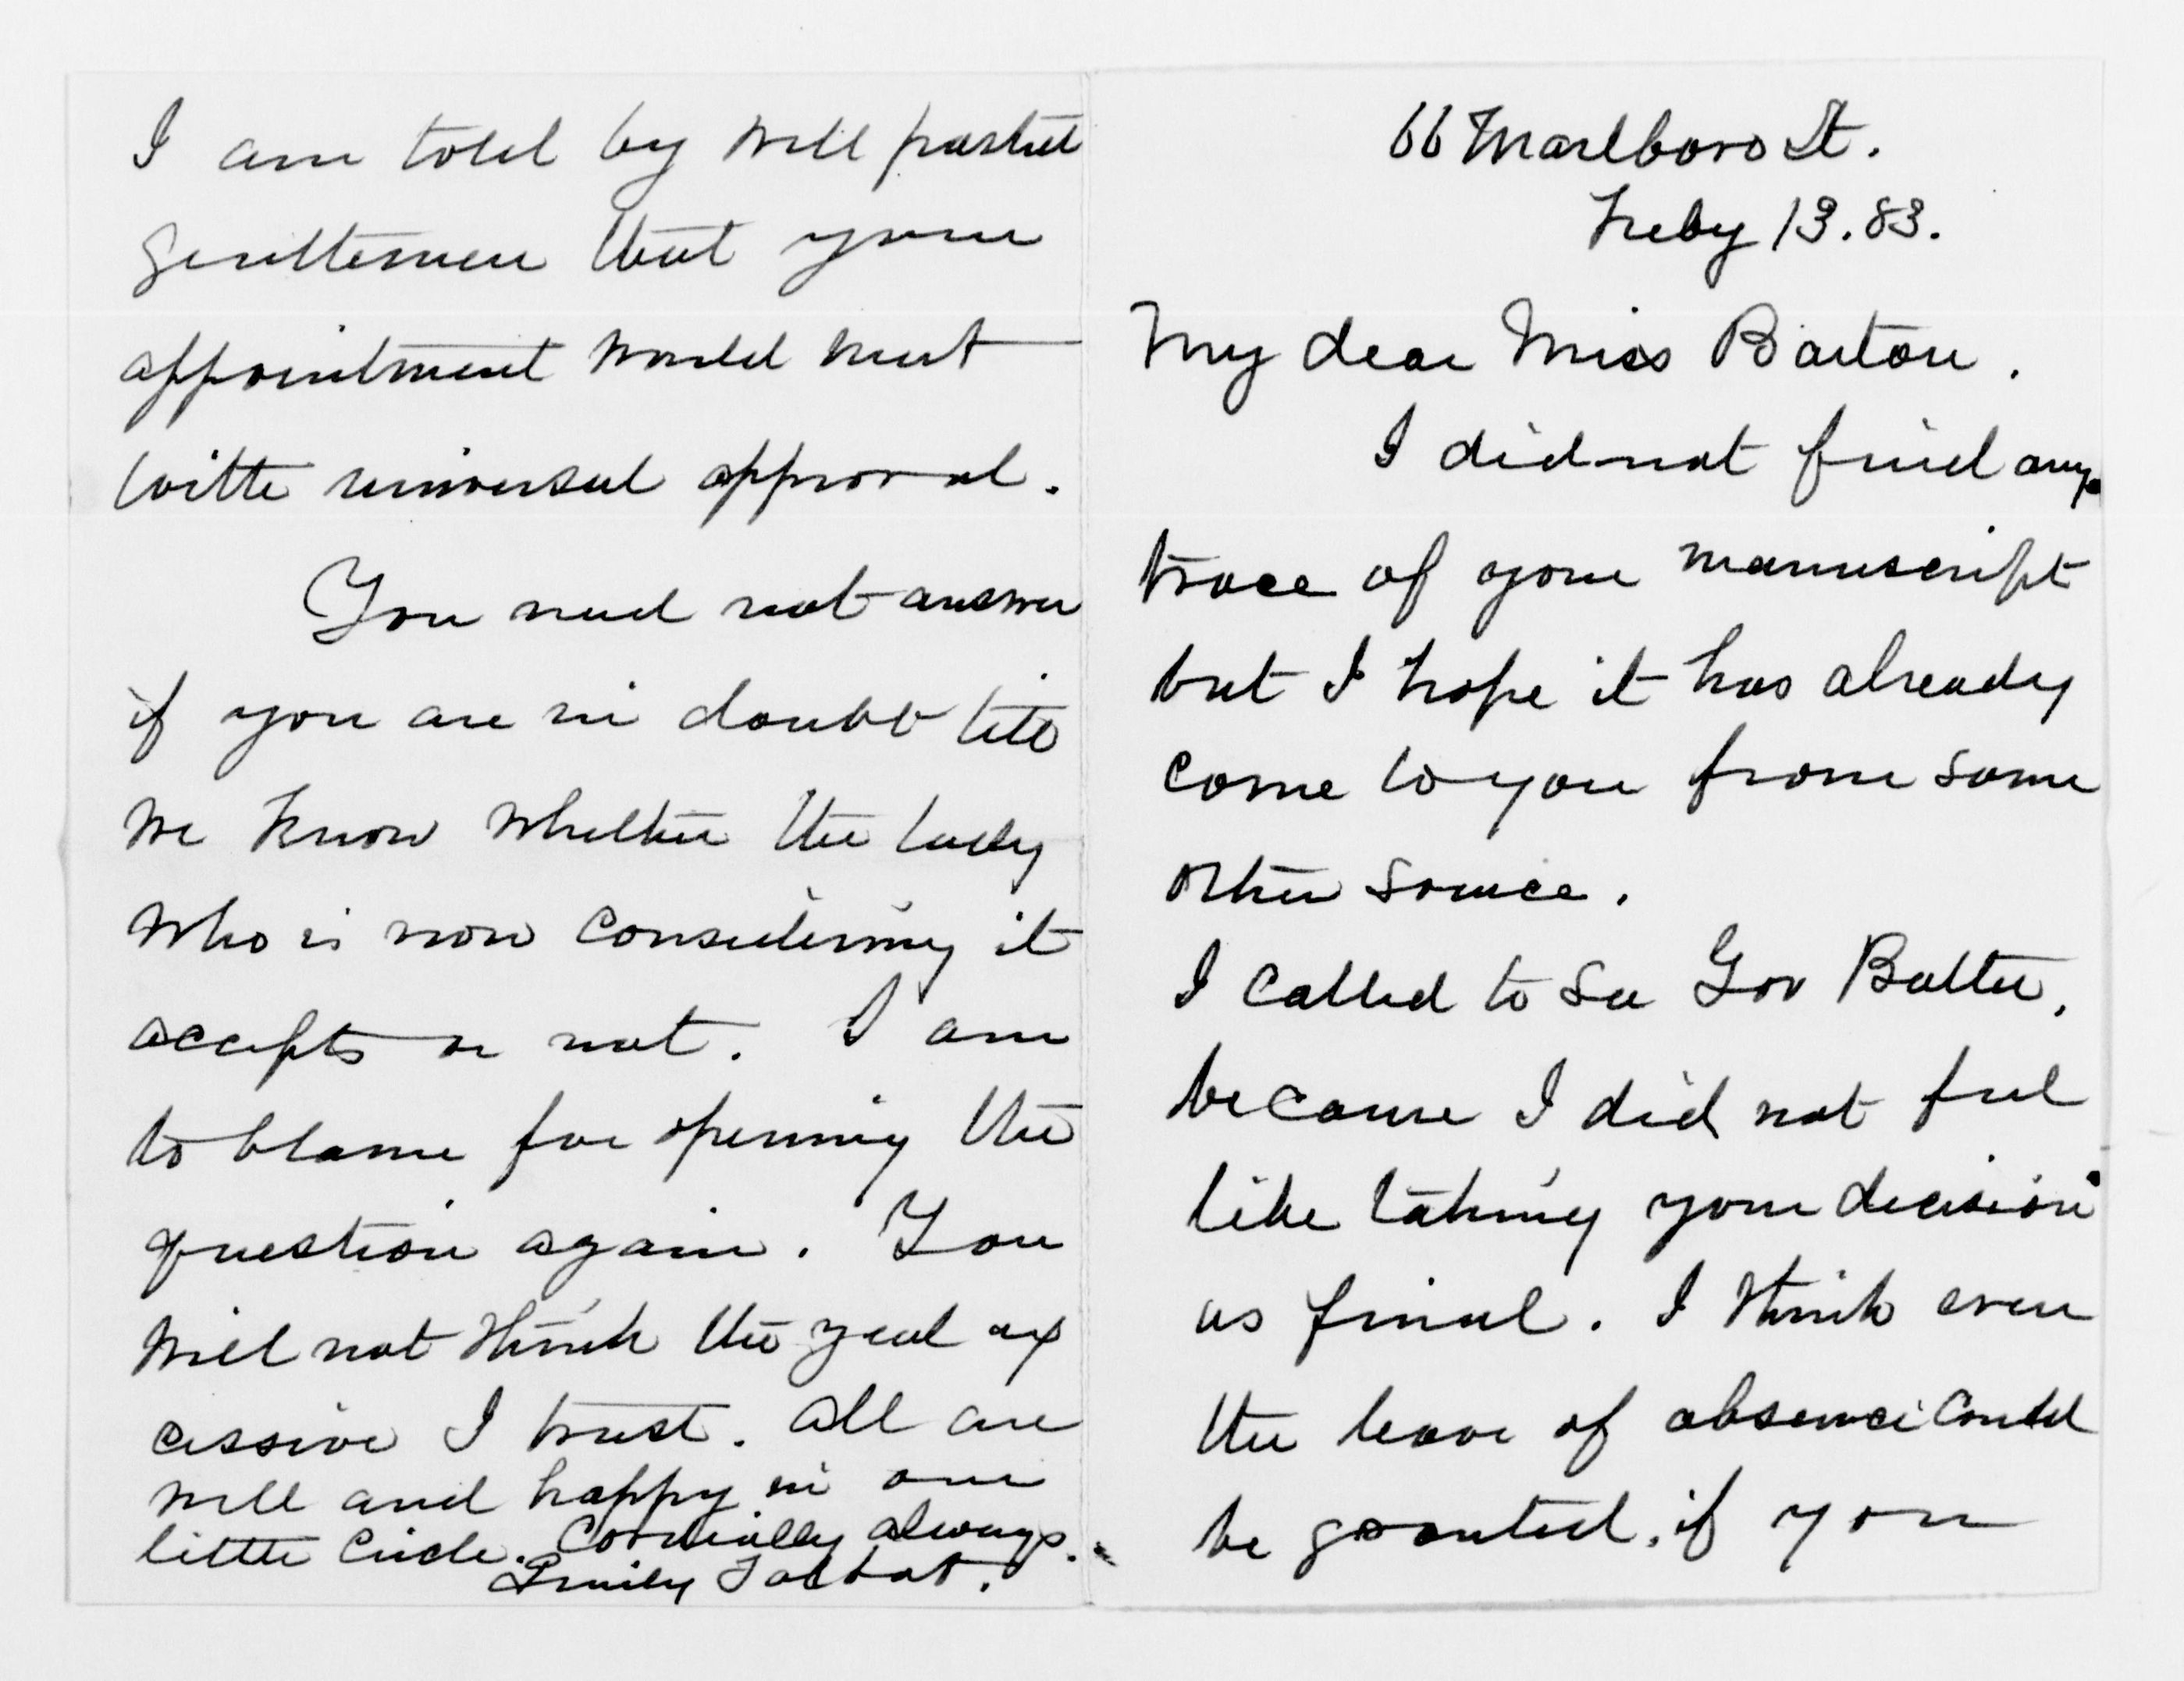 66 Marlboro St.
Feby 13. 83.
My dear Miss Barton.
I did not find any
trace of your manuscript
but I hope it has already
come to you from some
other source.
I called to see Gov Butler,
because I did not feel
like taking your decision
as final. I think even
the leave of absence could
be granted, if you
I am told by well posted
gentlemen that your
appointment would meet
with universal approval.
You need not answer
if you are in doubt till
we know whether the lady
who is now considering it
accepts or not. I am
to blame for opening the
question again. You
will not think the zeal ex
cessive I trust. All are
well and happy in our
little circle. Cordially always.
Emily Talbot.